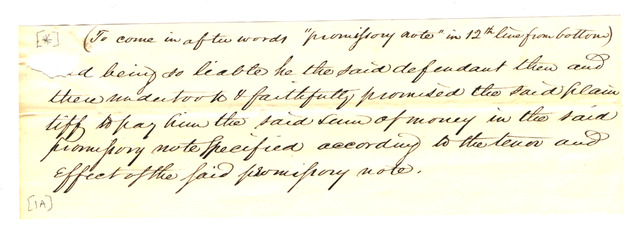 [*]
(To come in after words "promissory note" in 12th line from bottom)
being so liable he the said defendant then and
there undertook & faithfully promised the said plain
tiff to pay him the said sum of money in the said
promissory note specified according to the tenor and
Effect of the said promissory note.
[1A]